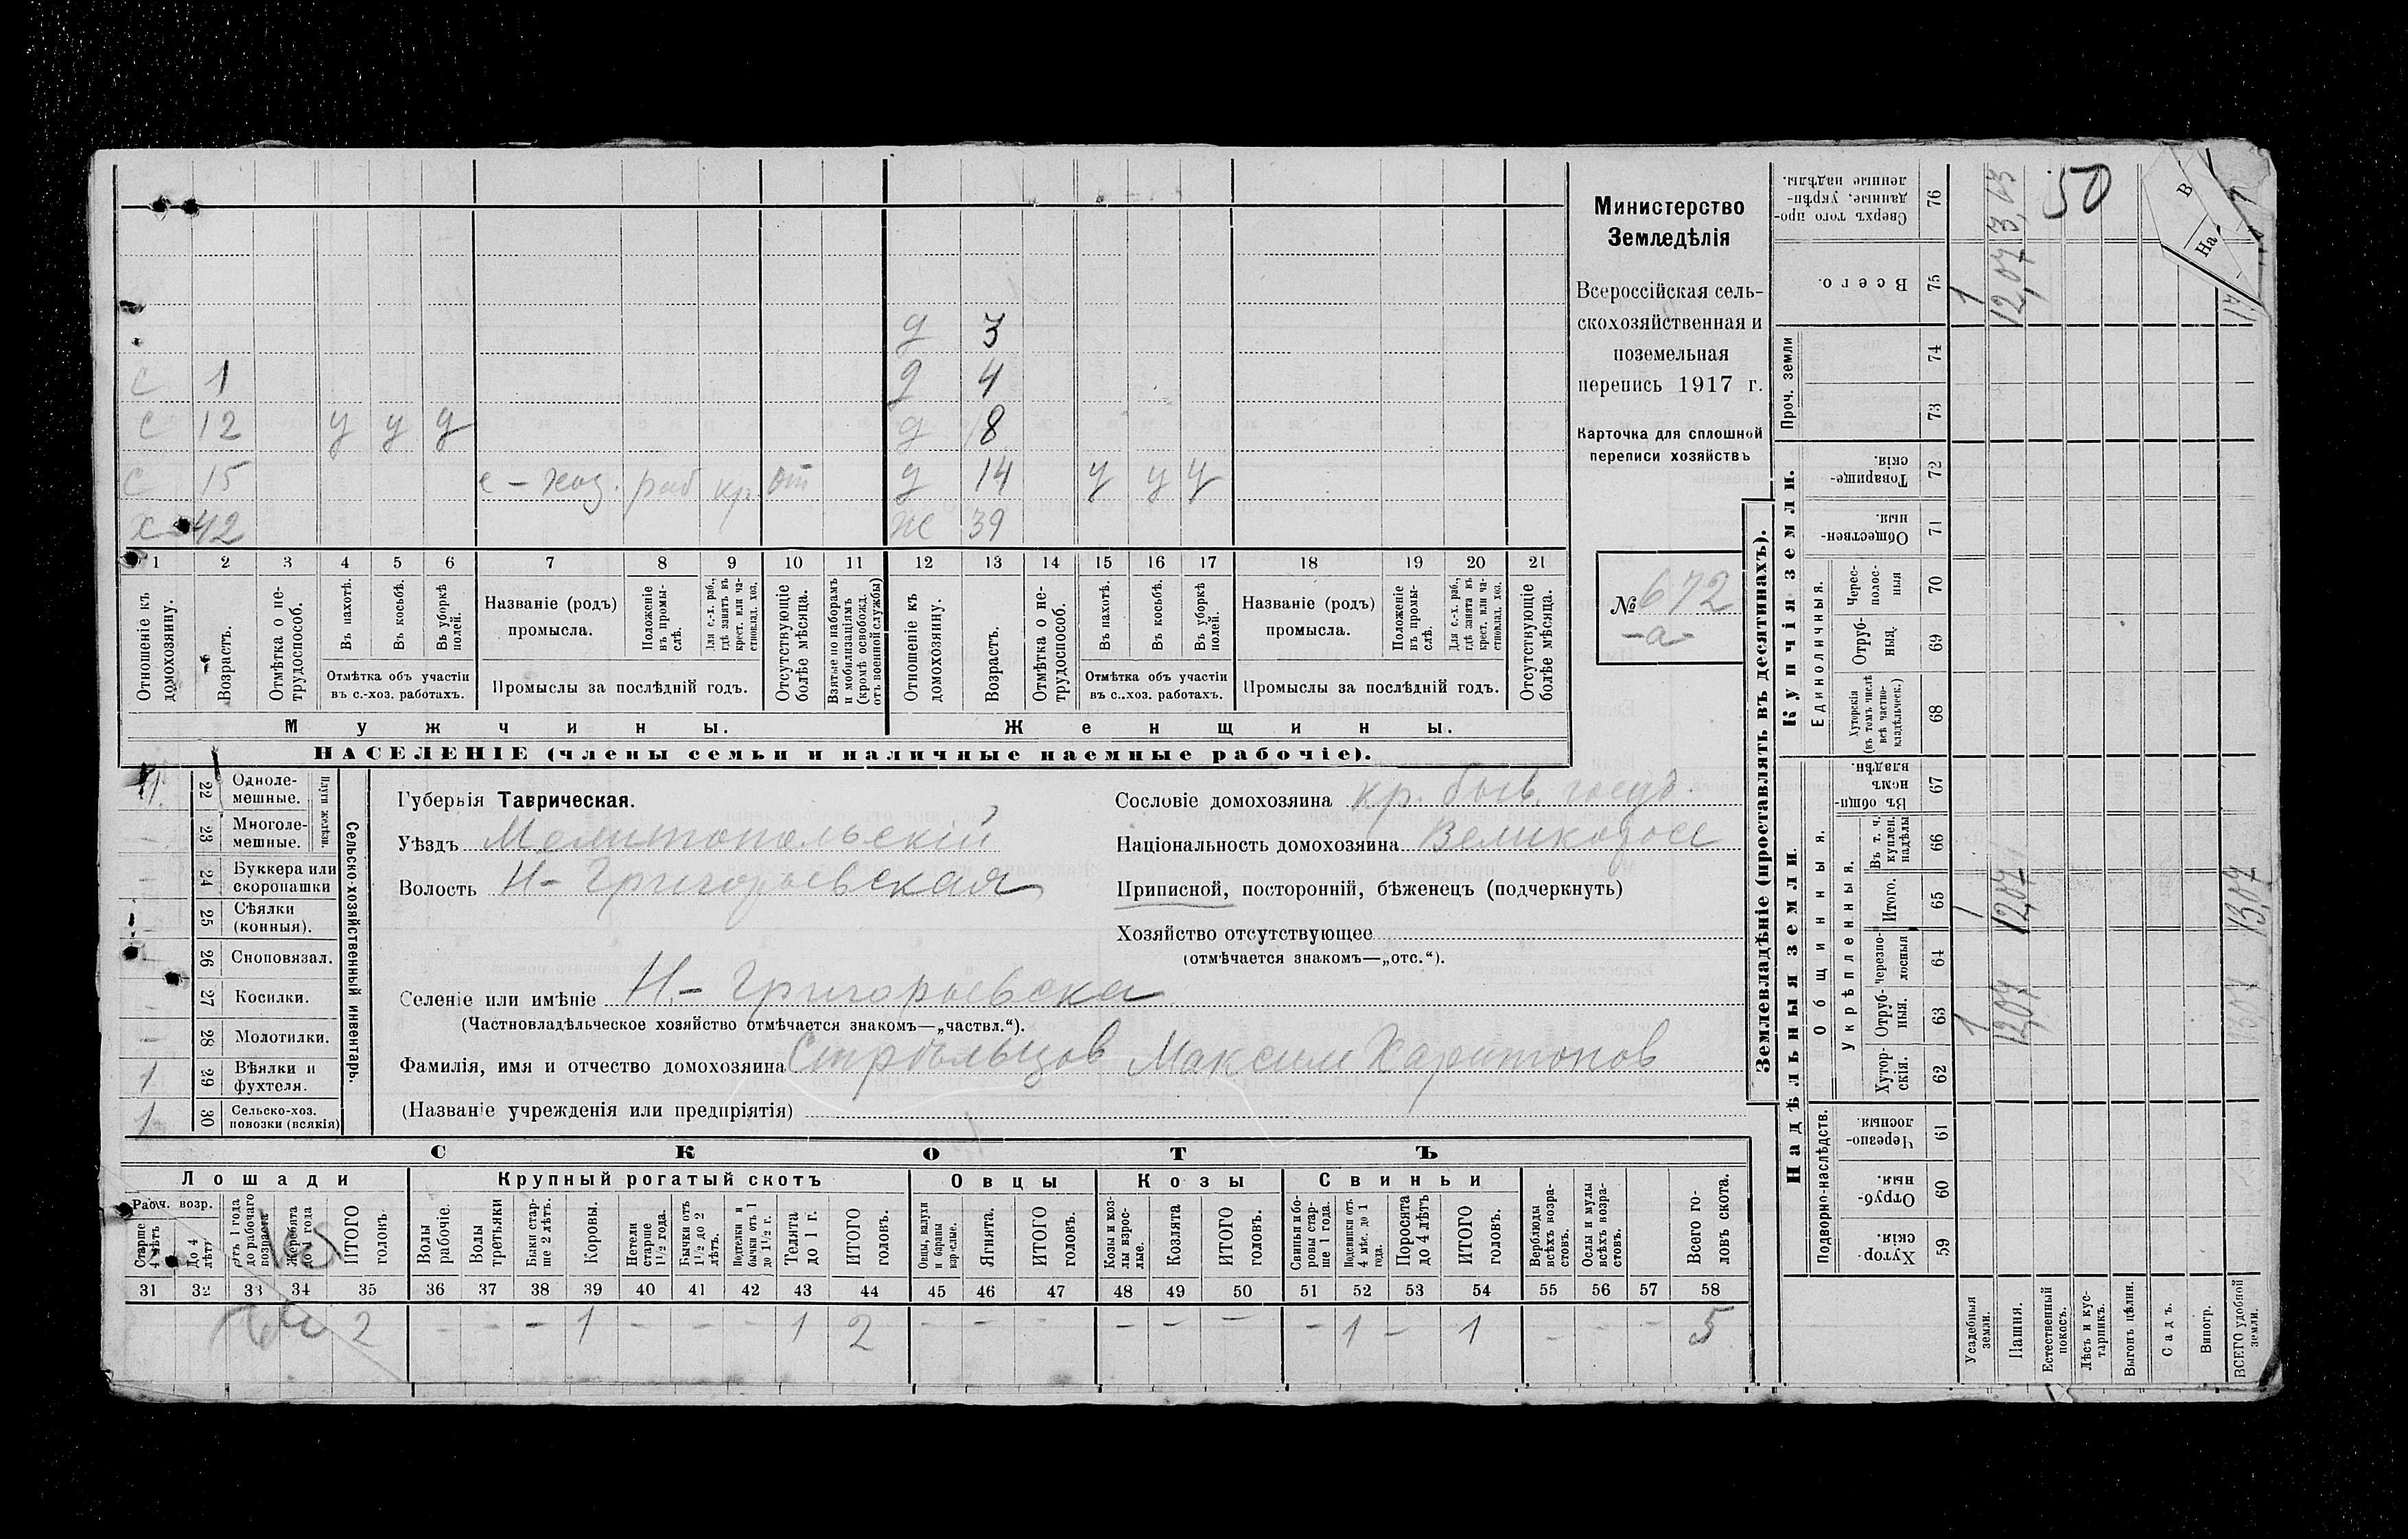 Министерство
Земледѣлія
Всероссійская сель-
скохозяйственная и
поземельная
перепись 1917 г.
Карточка для сплошной
переписи хозяйствъ
№ 672
-а-
д 3
с 1 д 4
с 12 у у у д 8
с 15 с-хоз. раб кр. от д 14 у у у
х 42 ж 39
1 2 3 4 5 6 7 8 9 10 11 12 13 14 15 16 17 18 19 20 21
Отношеніе къ домохозяину.
Возрастъ.
Отмѣтка о не-трудоспособ.
Въ пахотѣ.
Въ косьбѣ.
Въ уборкѣ полей.
Отмѣтка объ участіи
въ с.-хоз. работахъ.
Названіе (родъ)
промысла.
Положеніе въ промы-слѣ.
Для с.-х. раб., гдѣ занятъ въ крест. или ча-стновлад. хоз.
Промыслы за послѣдній годъ.
Отсутствующіе болѣе мѣсяца.
Взятые по наборамъ и мобилизаціямъ (кромѣ освобожд. отъ военной службы)
Отношеніе къ домохозяину.
Возрастъ.
Отмѣтка о не-трудоспособ.
Въ пахотѣ.
Въ косьбѣ.
Въ уборкѣ полей.
Отмѣтка объ участіи
въ с.-хоз. работахъ.
Названіе (родъ)
промысла.
Положеніе въ промы-слѣ.
Для с.-х. раб., гдѣ занята въ крест. или ча-стновлад. хоз.
Промыслы за послѣдній годъ.
Отсутствующіе болѣе мѣсяца.
Мужчины. Женщины.
НАСЕЛЕНІЕ (члены семьи и наличные наемные рабочіе).
Сельско-хозяйственный инвентарь.
Плуги желѣзн.
1 22 Одноле-мешные.
- 23 Многоле-мешные.
- 24 Буккера или скоропашки
25 Сѣялки (конныя).
26 Сноповязал.
- 27 Косилки.
- 28 Молотилки.
1 29 Вѣялки и фухтеля.
1 30 Сельско-хоз. повозки (всякія)
Губернія Таврическая.
Уѣздъ Мелитопольскій
Волость Н-Григорьевская
Сословіе домохозяина кр. быв. госуд.
Національность домохозяина Великоросс
Приписной, посторонній, бѣженецъ (подчеркнуть)
Хозяйство отсутствующее
(отмѣчается знакомъ—„отс.“).
Селеніе или имѣніе Н.-Григорьевка
(Частновладѣльческое хозяйство отмѣчается знакомъ—„частвл.“).
Фамилія, имя и отчество домохозяина Стрѣльцов Максим Харитонов
(Названіе учрежденія или предпріятія)
СКОТЪ
Лошади Крупный рогатый скотъ Овцы Козы Свиньи
Рабч. возр.
Старше 4 лѣтъ
До 4 лѣтъ
Отъ 1 года до рабочаго возраста
Жеребята до 1 года
ИТОГО головъ.
Волы рабочіе.
Волы третьяки
Быки стар-ше 2 лѣтъ.
Коровы.
Нетели старше 1½ года.
Бычки отъ 1½ до 2 лѣтъ.
Подтелки и бычки отъ 1 до 1½ г.
Телята до 1 г.
ИТОГО головъ.
Овцы, валухи и бараны взрослые.
Ягнята.
ИТОГО головъ.
Козы и коз-лы взрос-лые.
Козлята
ИТОГО головъ.
Свиньи и бо-ровы стар-ше 1 года.
Подсвинки отъ 4 мѣс. до 1 года.
Поросята до 4 лѣтъ
ИТОГО головъ.
Верблюды всѣхъ возра-стовъ.
Ослы и мулы всѣхъ возра-стовъ.
Всего го-ловъ скота.
31 32 33 34 35 36 37 38 39 40 41 42 43 44 45 46 47 48 49 50 51 52 53 54 55 56 57 58
2 - - - 1 - - - 1 2 - - - - - - - 1 - 1 - - - 5
Землевладѣніе (проставлять въ десятинахъ).
Купчія земли.
Надѣльныя земли
Сверхъ того про-данные, укрѣп-ленные надѣлы. 76 3,63
50
Всего. 75 1 12,07
Проч. земли 74
73
Товарище-скія. 72
Обществен-ныя. 71
Единоличныя.
Черес-полос-ныя 70
Отруб-ныя. 69
Хуторскія (въ томъ числѣ всѣ частно-владѣльческ.) 68
Общинныя.
Въ общи-номъ владѣн. 67
Укрѣпленныя.
Въ т. ч. куплен. надѣлы 66
Итого. 65 1 12,07 13,07
Черезпо-лосныя 64
Отруб-ныя. 63 1 12,07 13,07
Хутор-скія. 62
Подворно-наслѣдств.
Черезпо-лосныя 61
Отруб-ныя. 60
Хутор-скія. 59
Усадебныя земли.
Пашня.
Естественный покосъ.
Лѣсъ и кус-тарникъ.
Выгонъ цѣлин.
Садъ.
Виногр.
ВСЕГО удобной земли.
В
На